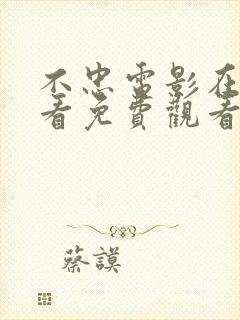 不忠雷影在
看免費觀看
蔡謨